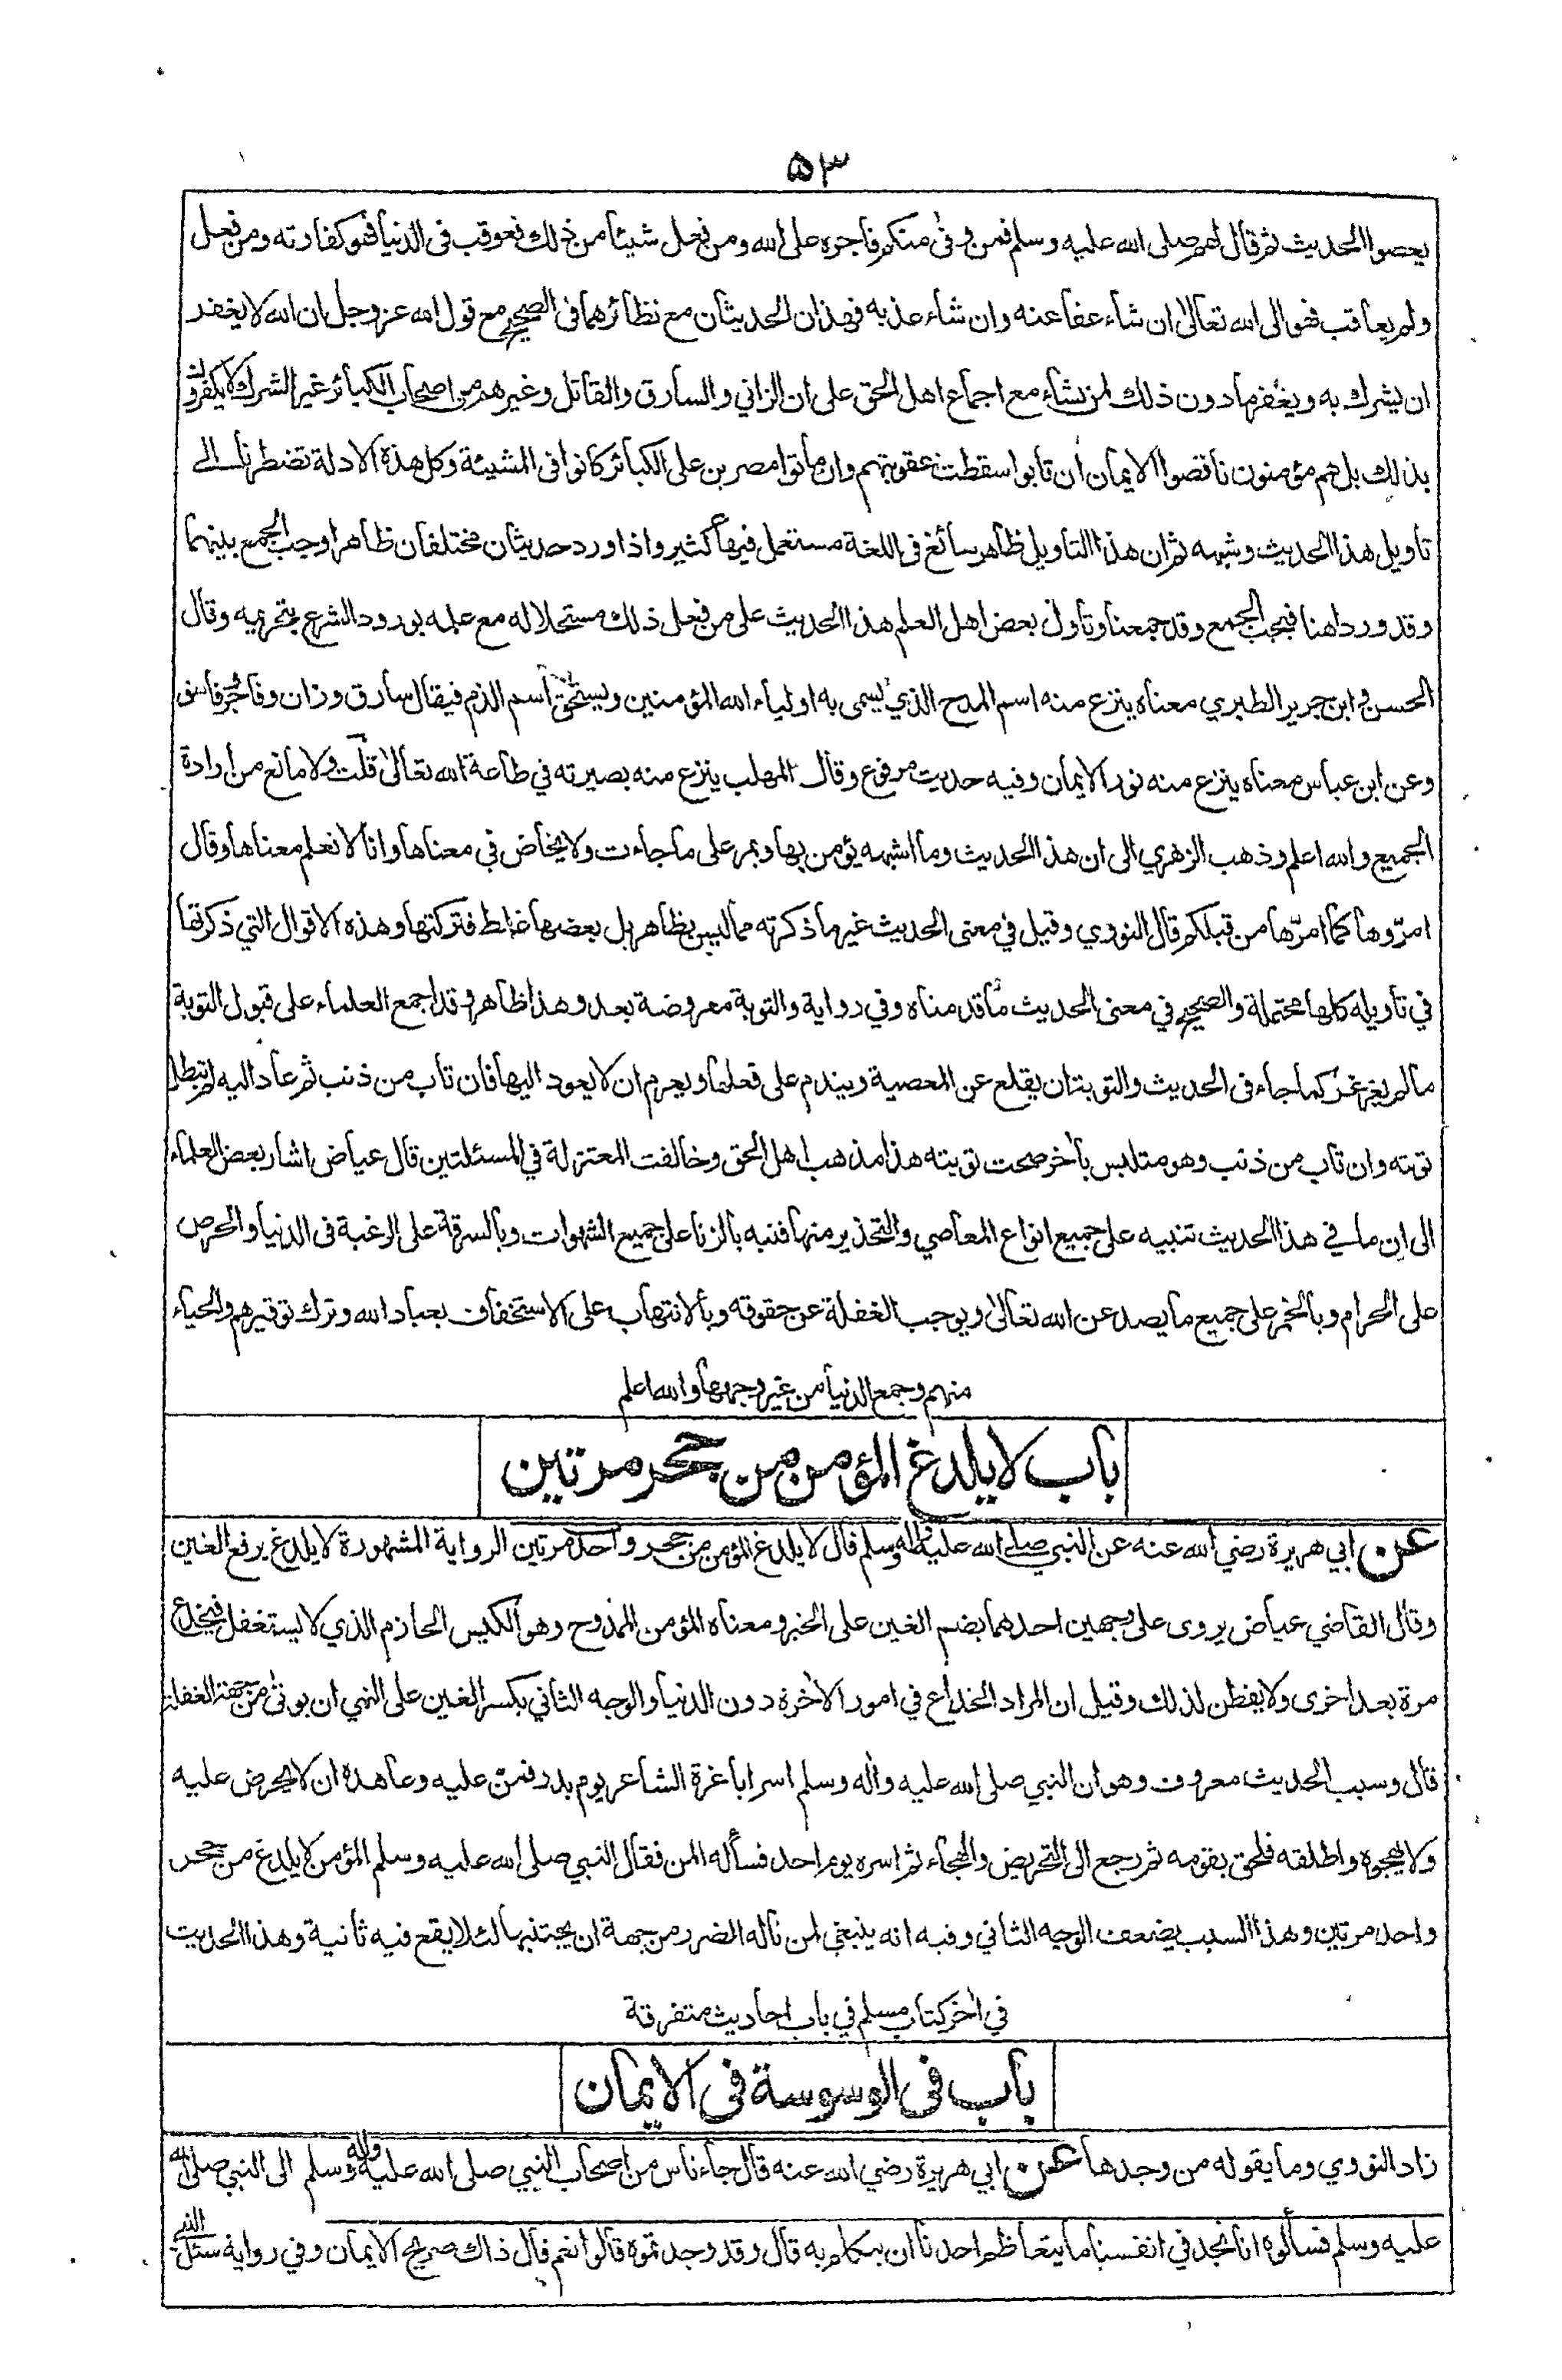 ۵۳
يعصوا الحديث ثم قال لهم صلى الله عليه وسلم فمن وفى منكم فاجره على الله ومن فعل شيئا من ذلك فعوقب فى الدنيا فهو كفارته ومن فعل
ولم يعاقب فهو الى الله تعالى ان شاء عفا عنه وان شاء عذبه فهذان الحديثان مع نظائرهما فى الصحيح مع قول الله عز وجل ان الله لا يغفر
ان يشرك به ويغفر ما دون ذلك لمن يشاء مع اجماع اهل الحق على ان الزاني والسارق والقاتل وغيرهم من اصحاب الكبائر غير الشرك لا يكفرون
بذلك بل هم مؤمنون ناقصوا الايمان ان تابوا سقطت عقوبتهم وان ماتوا مصرين على الكبائر كانوا فى المشيئة وكل هذه الادلة تضطرنا الى
تاويل هذا الحديث وشبهه ثم ان هذا التاويل ظاهر سائغ فى اللغة مستعمل فيها كثير واذا ورد حديثان مختلفان ظاهرا وجب الجمع بينهما
وقد وردا هنا فيجب الجمع وقد جمعنا وتاول بعض اهل العلم هذا الحديث على من فعل ذلك مستحلا له مع علمه بورود الشرع بتحريمه وقال
الحسن و ابن جرير الطبري معناه ينزع منه اسم المدح الذي يسمى به اولياء الله المؤمنين ويستحق اسم الذم فيقال سارق وزان وفاجر وفاسق
وعن ابن عباس معناه ينزع منه نور الايمان وفيه حديث مرفوع وقال المهلب ينزع منه بصيرته في طاعة الله تعالى قلت ولا مانع من ارادة
الجميع والله اعلم وذهب الزهري الى ان هذا الحديث وما اشبهه يؤمن بها ويمر على ما جاءت ولا يخاض في معناها وانا لا نعلم معناها وقال
امرّوها كما امرّها من قبلكم قال النووي وقيل في معنى الحديث غير ما ذكرته مما ليس بظاهر بل بعضها غلط فتركتها وهذه الاقوال التي ذكرتها
في تاويله كلها محتملة والصحيح في معنى الحديث ما قدمناه وفي رواية والتوبة معروضة بعد وهذا ظاهر وقد اجمع العلماء على قبول التوبة
ما لم يغرغر كما جاء فى الحديث والتوبة ان يقلع عن المعصية ويندم على فعلها ويعزم ان لا يعود اليها فان تاب من ذنب ثم عاد اليه لم تبطل
توبته وان تاب من ذنب وهو متلبس باخر صحت توبته هذا مذهب اهل الحق وخالفت المعتزلة في المسئلتين قال عياض اشار بعض العلماء
الى ان ما في هذا الحديث تنبيه على جميع انواع المعاصي والتحذير منها فنبه بالزنا على جميع الشهوات وبالسرقة على الرغبة فى الدنيا والحرص
على الحرام وبالخمر على جميع ما يصد عن الله تعالى ويوجب الغفلة عن حقوقه وبالانتهاب على الاستخفاف بعباد الله وترك توقيرهم والحياء
منهم وجمع الدنيا من غير وجهها والله اعلم
باب لا يلدغ المؤمن من جحر مرتين
عن ابي هريرة رضي الله عنه عن النبي صلى الله عليه واله وسلم قال لا يلدغ المؤمن من جحر واحد مرتين الرواية المشهورة لا يلدغ برفع الغين
وقال القاضي عياض يروى على وجهين احدهما بضم الغين على الخبر ومعناه المؤمن الممدوح وهو الكيس الحازم الذي لا يستغفل فيخدع
مرة بعد اخرى ولا يفطن لذلك وقيل ان المراد الخداع في امور الاخرة دون الدنيا والوجه الثاني بكسر الغين على النهي ان يوتى من جهة الغفلة
قال وسبب الحديث معروف وهو ان النبي صلى الله عليه واله وسلم اسر ابا غرة الشاعر يوم بدر فمن عليه وعاهده ان لا يحرض عليه
ولا يهجوه واطلقه فلحق بقومه ثم رجع الى التحريض والهجاء ثم اسره يوم احد فسأله المن فقال النبي صلى الله عليه وسلم المؤمن لا يلدغ من جحر
واحد مرتين وهذا السبب يضعف الوجه الثاني وفيه انه ينبغي لمن ناله الضرر من جهة ان يجتنبها لئلا يقع فيه ثانية وهذا الحديث
في اخر كتاب مسلم في باب احاديث متفرقة
باب فى الوسوسة فى الايمان
زاد النووي وما يقوله من وجدها عن ابي هريرة رضي الله عنه قال جاء ناس من اصحاب النبي صلى الله عليه واله وسلم الى النبي صلى الله
عليه وسلم فسألوه انا نجد في انفسنا ما يتعاظم احدنا ان يتكلم به قال وقد وجدتموه قالوا نعم قال ذاك صريح الايمان وفي رواية سئل النبي